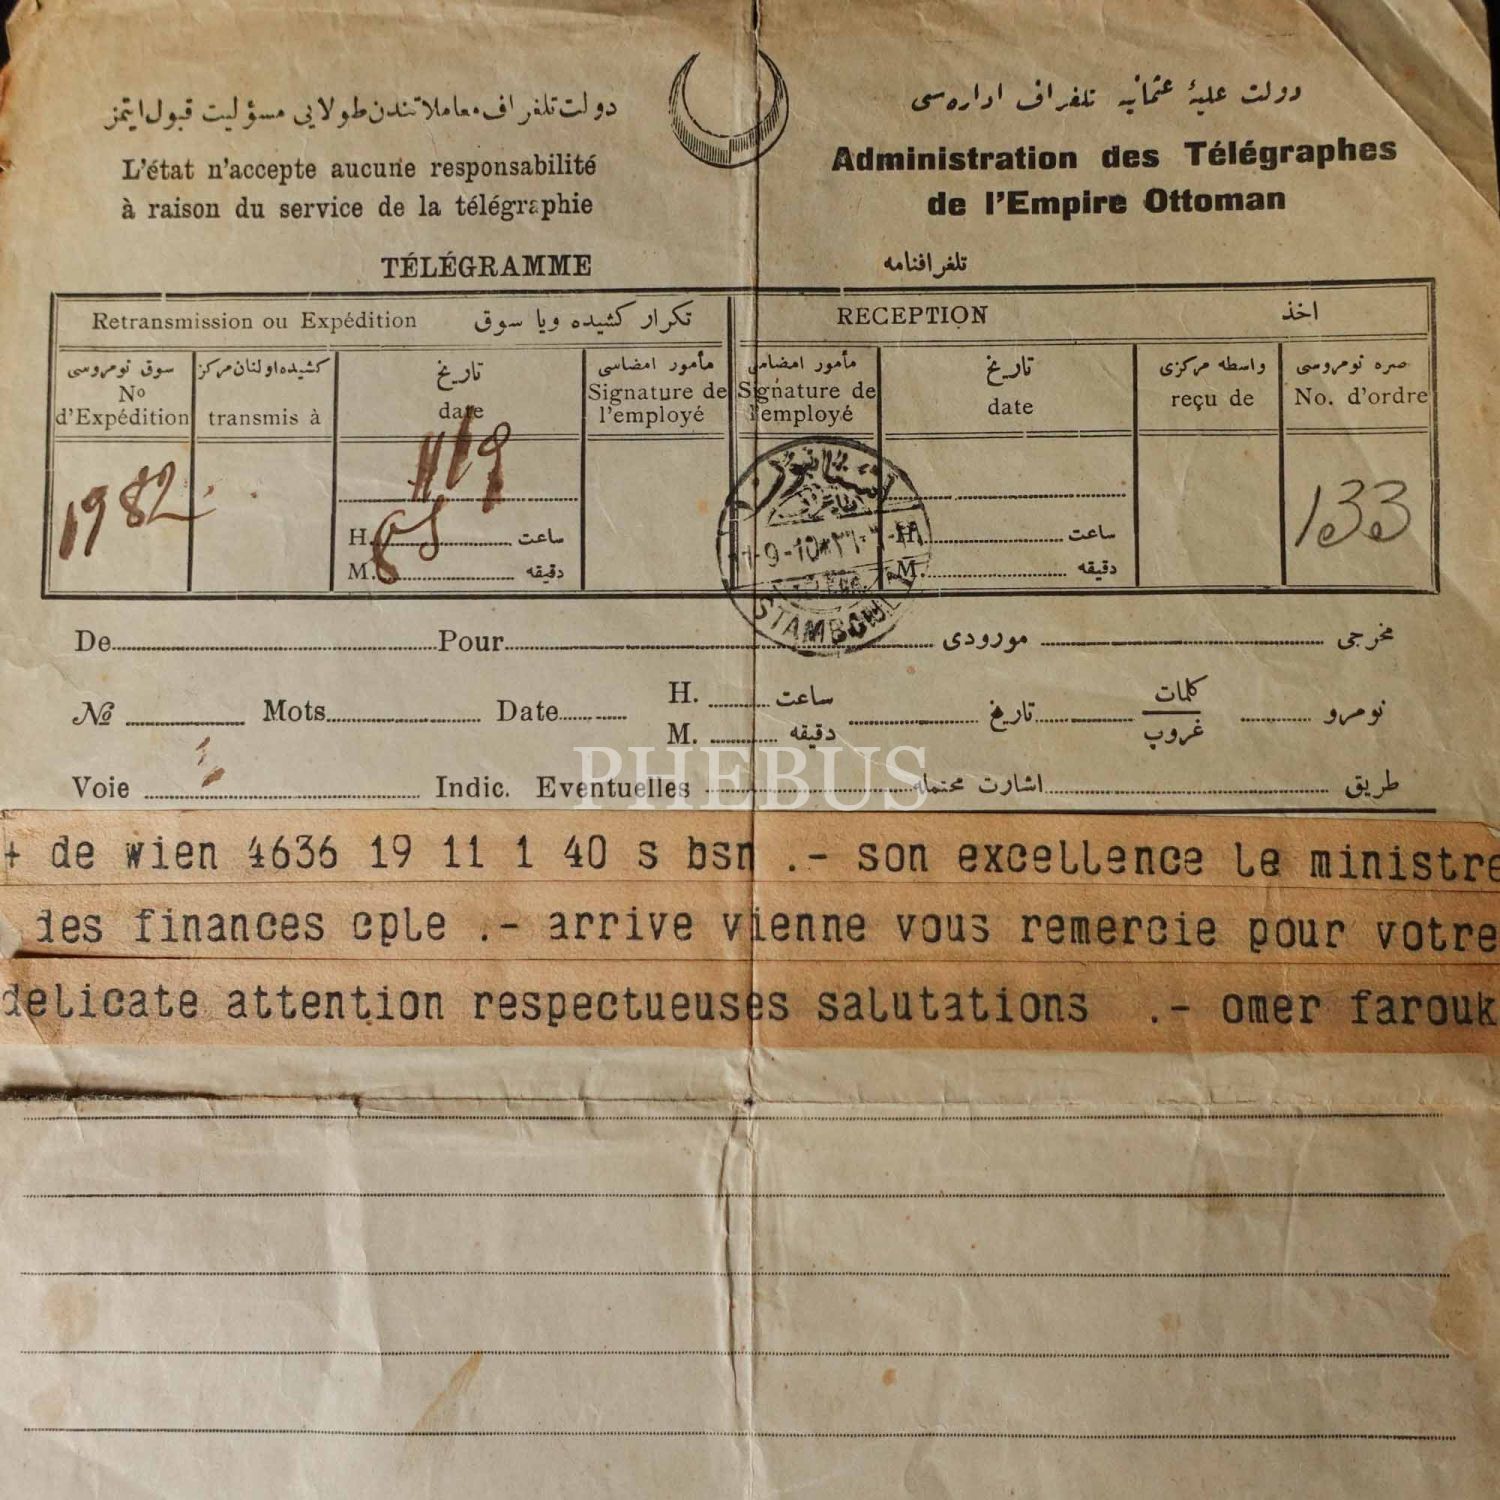 دولت تلغراف معاملاتندن طولايى مسؤليت قبول ايتمز
L'état n'accepte aucune responsabilité
à raison du service de la télégraphie
دولت عليۀ عثمانيه تلغراف اداره سى
Administration des Télégraphes
de l'Empire Ottoman
TÉLÉGRAMME
تلغرافنامه
Retransmission ou Expédition تكرار كشيده ويا سوق
RECEPTION اخذ
سوق نومروسى
No
d'Expédition
كشيده اولنان مركز
transmis à
تاريخ
date
مأمور امضاسى
Signature de
l'employé
مأمور امضاسى
Signature de
l'employé
تاريخ
date
واسطه مركزى
reçu de
صره نومروسى
No. d'ordre
1982
11/9
H. ساعت
M. دقيقه
H. ساعت
M. دقيقه
133
STAMBOUL
De Pour مورودى مخرجى
No Mots Date H. ساعت تاريخ كلمات نومرو
M. دقيقه غروپ
Voie Indic. Eventuelles اشارت محتمله طريق
PHEBUS
+ de wien 4636 19 11 1 40 s bsn .- son excellence le ministre
des finances cple .- arrive vienne vous remercie pour votre
delicate attention respectueuses salutations .- omer farouk